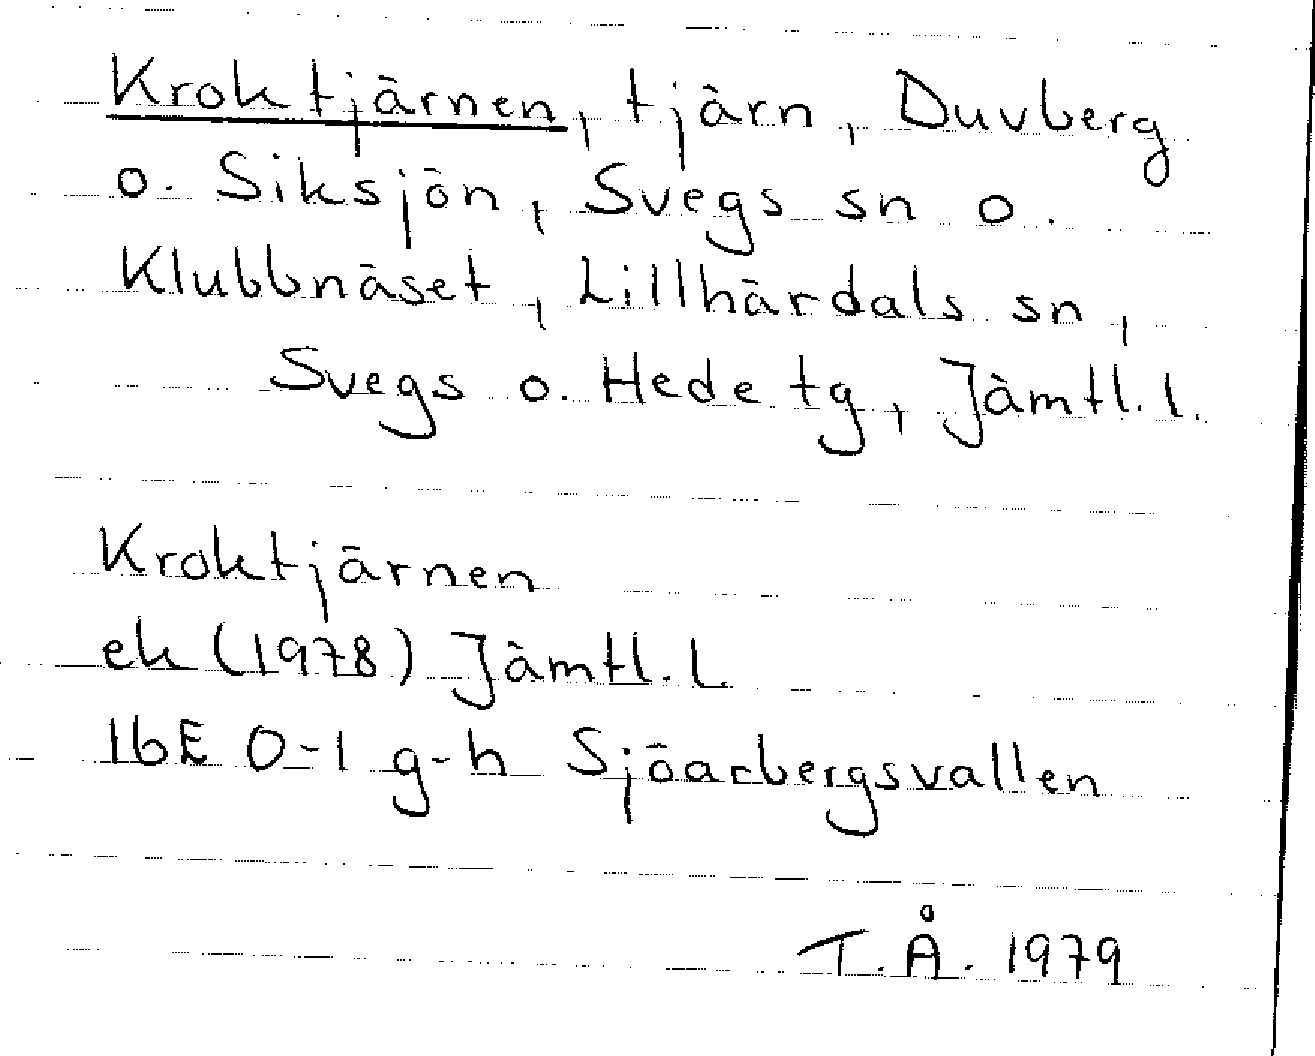 Kroktjärnen, tjärn, Duvberg
o. Siksjön, Svegs sn o.
Klubbnäset, Lillhärdals sn,
Svegs o. Hede tg, Jämtl. l.
Kroktjärnen
ek (1978) Jämtl. l.
16E 0-1 g-h Sjöarbergsvallen
T.Å. 1979